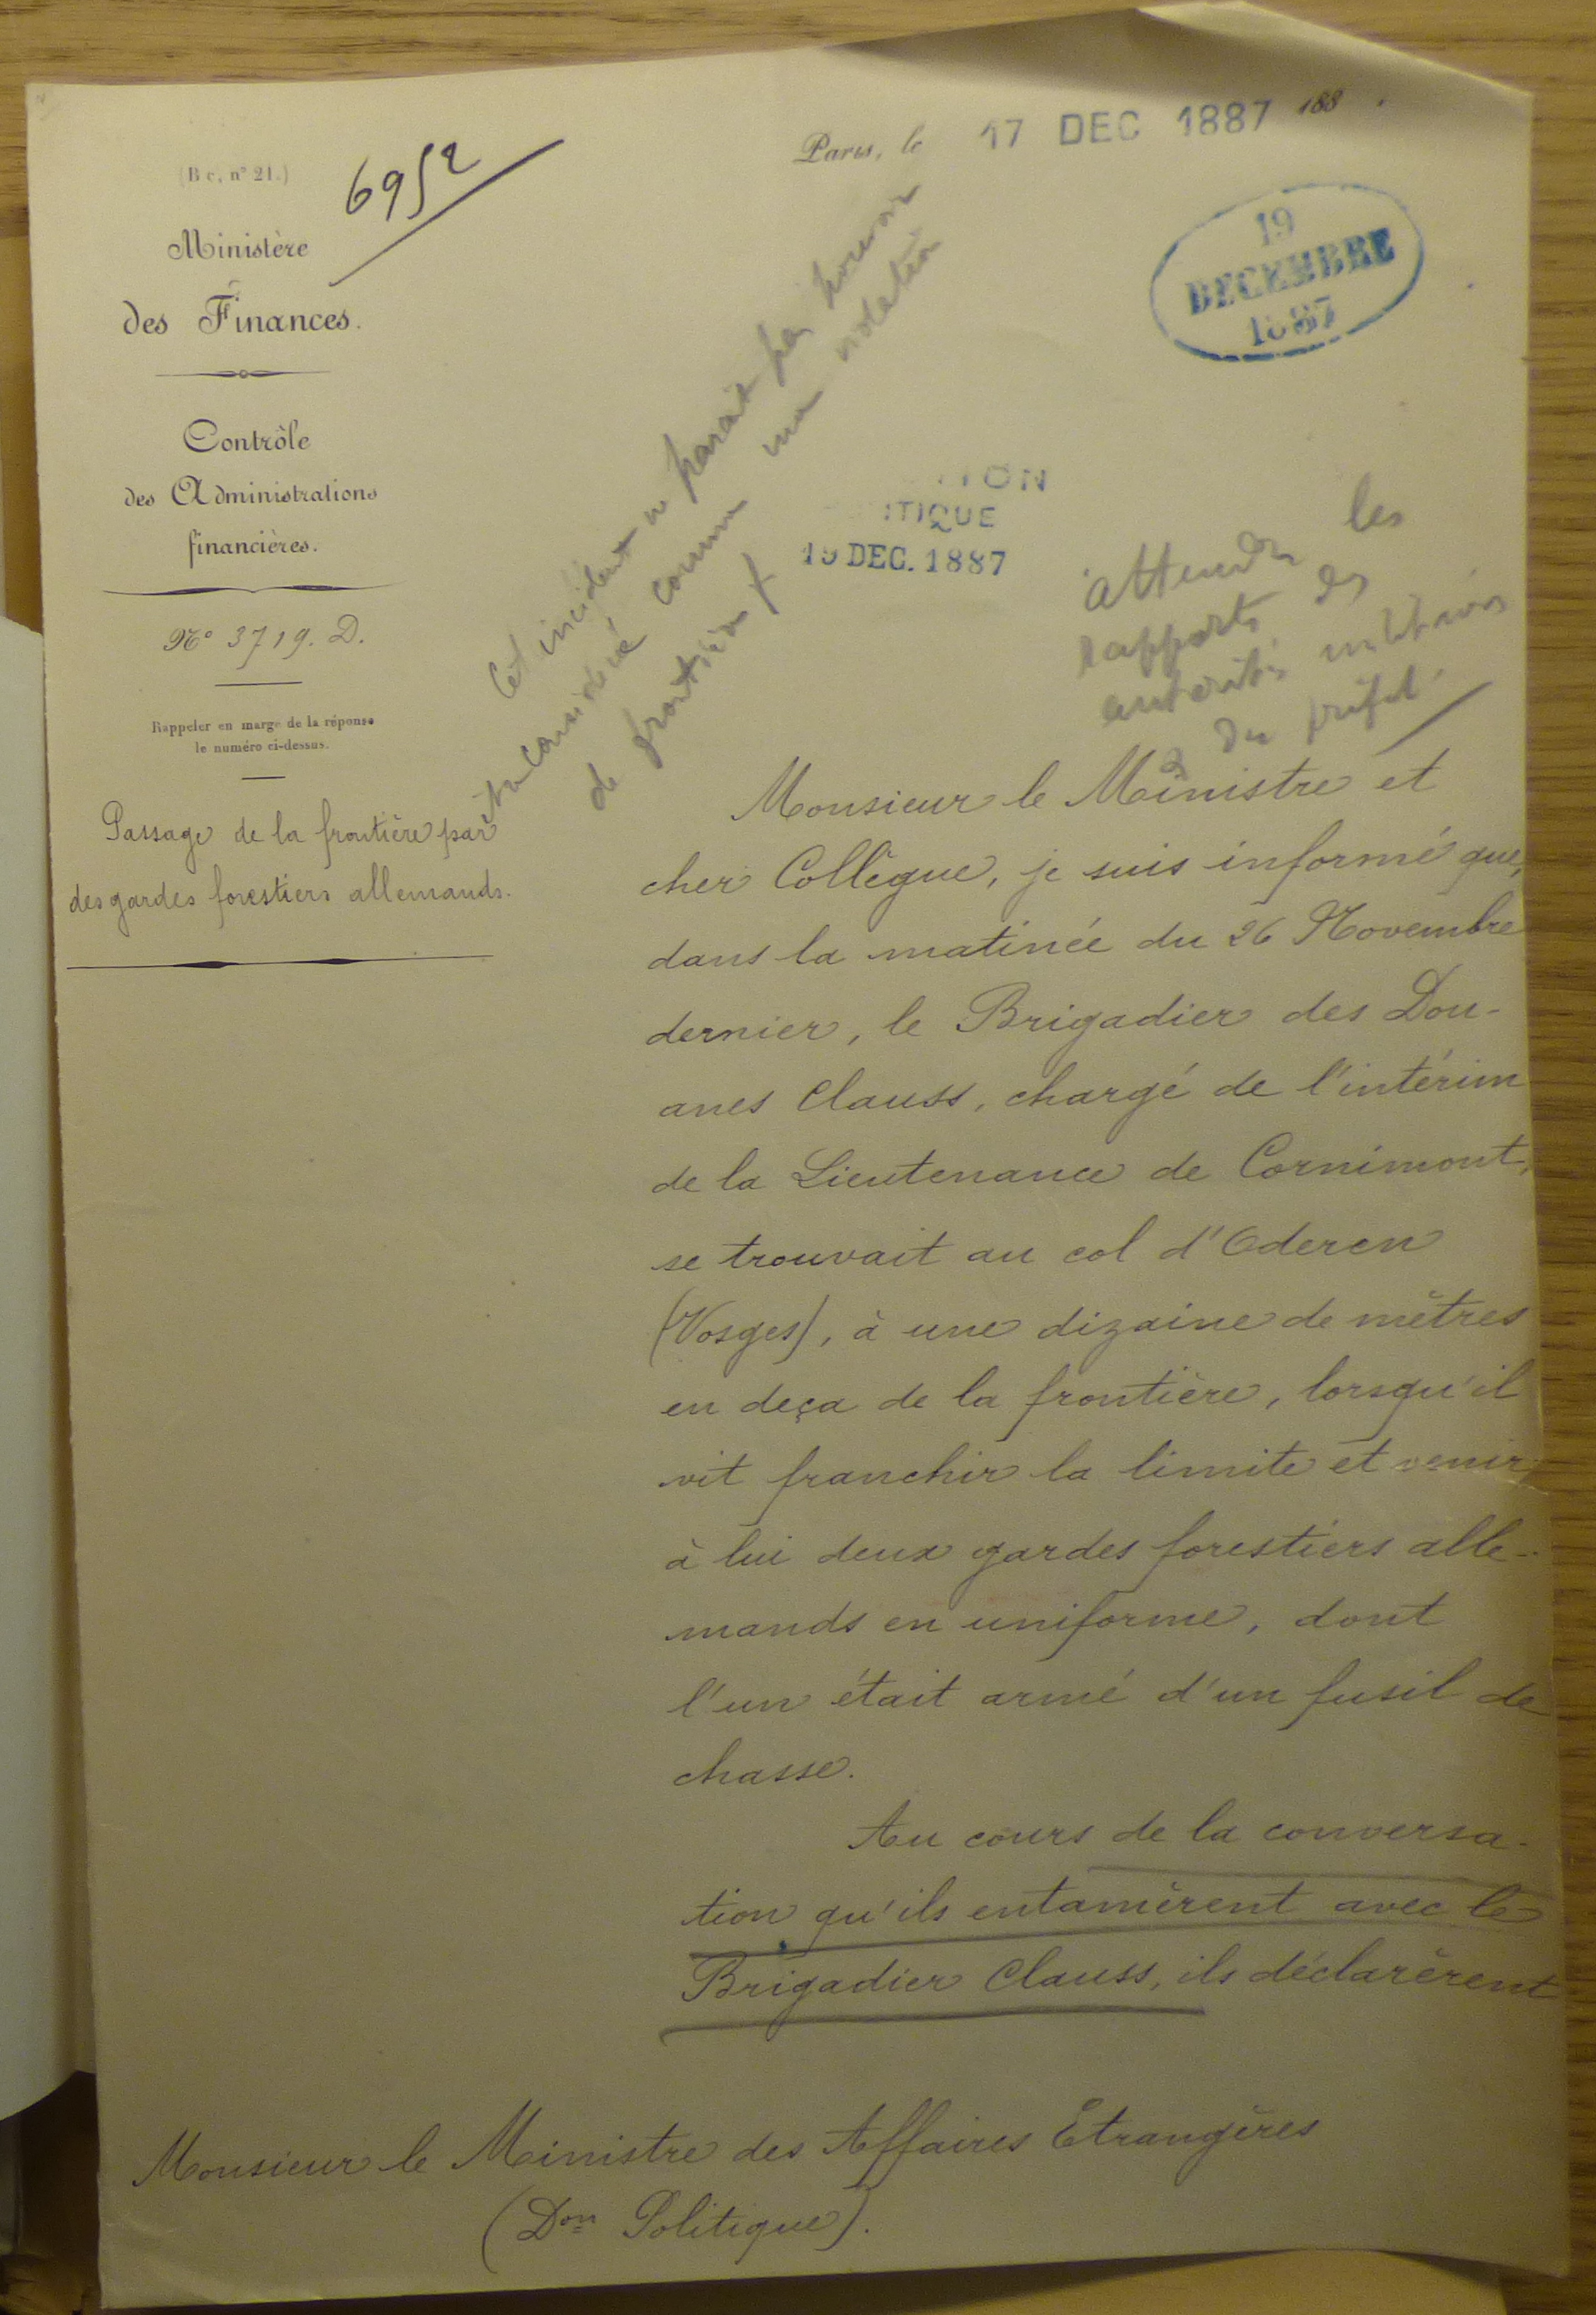 (B c, n° 21.)
6952
Paris, le 17 DEC 1887 188 .
Ministère
des Finances.
19
DECEMBRE
1887
Contrôle
des Administrations
financières.
TION
ITIQUE
19 DEC. 1887
N° 3719. D.
Rappeler en marge de la réponse
le numéro ci-dessus.
Passage de la frontière par
des gardes forestiers allemands.
Cet incident ne parait pas pouvoir
être considéré comme une violation
de frontière
attendre les
rapports des
autorités militaires
& du préfet.
Monsieur le Ministre et
cher Collègue, je suis informé que,
dans la matinée du 26 Novembre
dernier, le Brigadier des Dou-
anes Clauss, chargé de l'intérim
de la Lieutenance de Cornimont,
se trouvait au col d'Oderen
(Vosges), à une dizaine de mètres
en deça de la frontière, lorsqu'il
vit franchir la limite et venir
à lui deux gardes forestiers alle-
mands en uniforme, dont
l'un était armé d'un fusil de
chasse.
Au cours de la conversa-
tion qu'ils entamèrent avec le
Brigadier Clauss, ils déclarèrent
Monsieur le Ministre des Affaires Etrangères
(Don Politique).